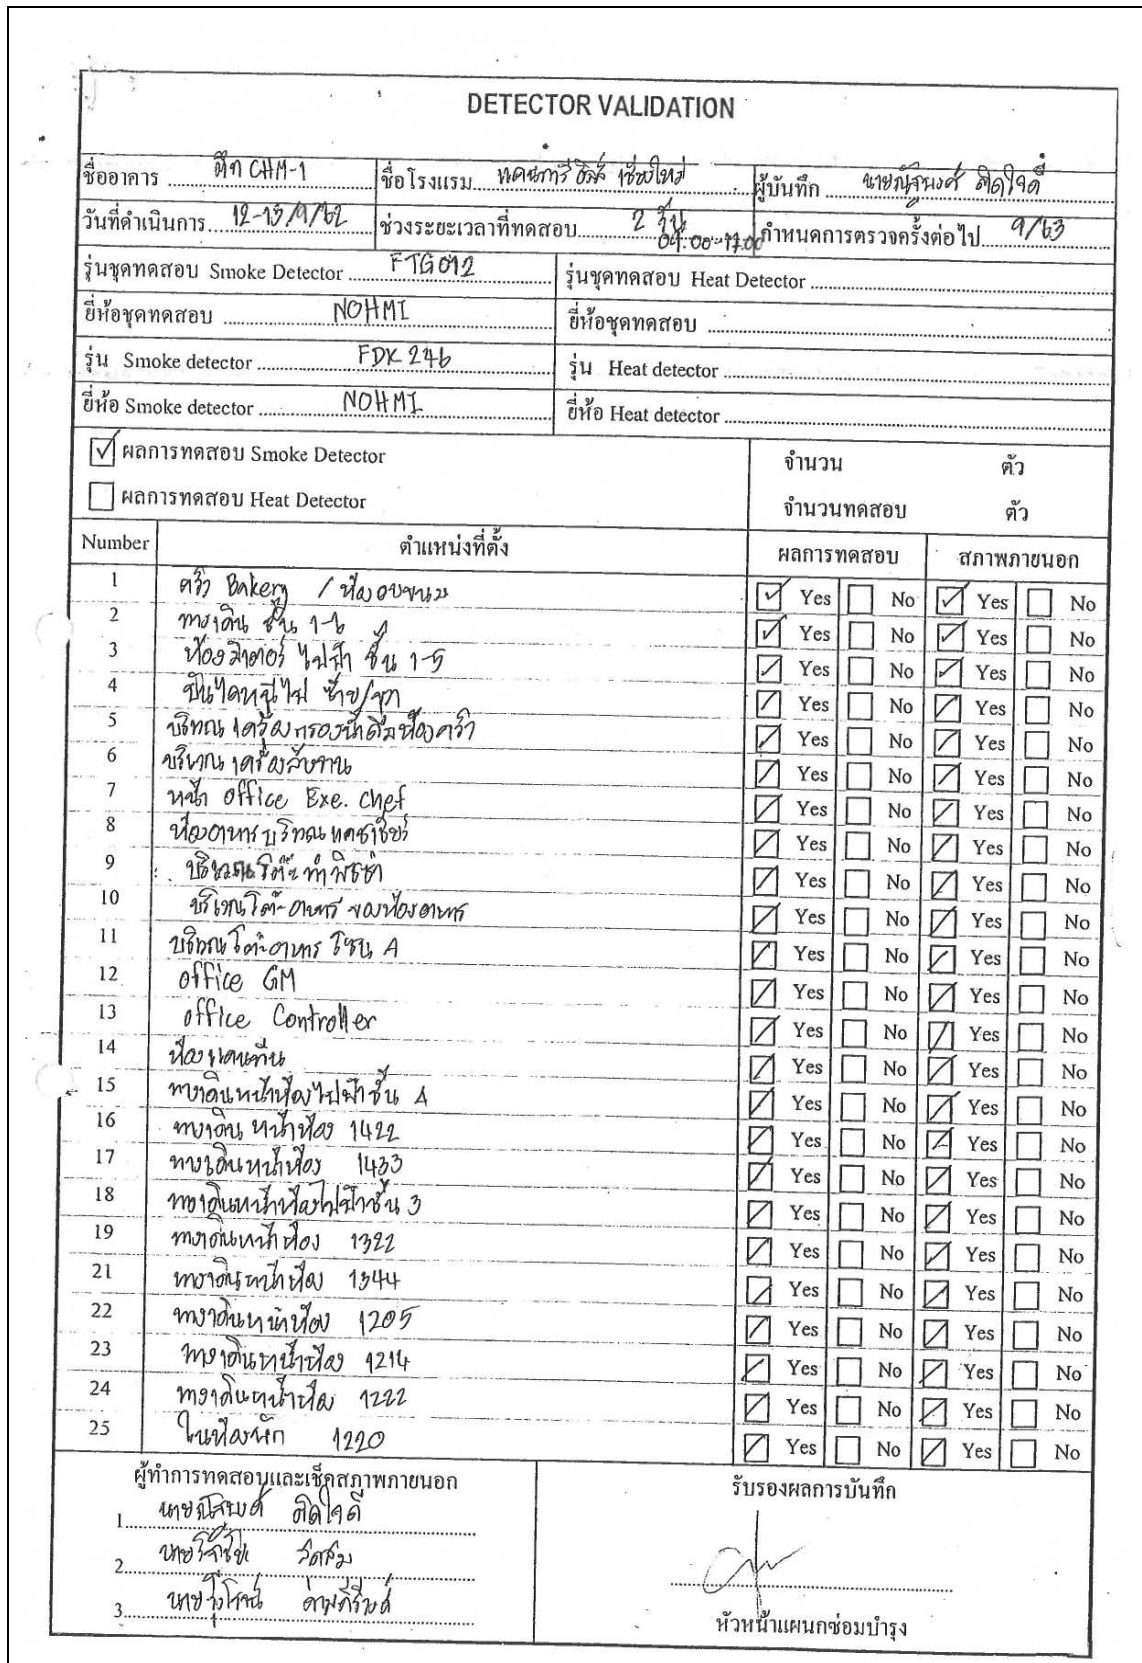 DETECTOR VALIDATION
ชื่ออาคาร ตึก CHM-1 ชื่อโรงแรม แคนทารี ฮิลส์ เชียงใหม่ ผู้บันทึก นาย ติดใจดี
วันที่ดำเนินการ 12-13/9/62 ช่วงระยะเวลาที่ทดสอบ 2 วัน 09.00-17.00 กำหนดการตรวจครั้งต่อไป 9/63
รุ่นชุดทดสอบ Smoke Detector FTG012 รุ่นชุดทดสอบ Heat Detector
ยี่ห้อชุดทดสอบ NOHMI ยี่ห้อชุดทดสอบ
รุ่น Smoke detector FDK 246 รุ่น Heat detector
ยี่ห้อ Smoke detector NOHMI ยี่ห้อ Heat detector
ผลการทดสอบ Smoke Detector จำนวน ตัว
ผลการทดสอบ Heat Detector จำนวนทดสอบ ตัว
Number ตำแหน่งที่ตั้ง ผลการทดสอบ สภาพภายนอก
1 ครัว Bakery / ห้องอบขนม Yes No Yes No
2 ทางเดิน ชั้น 1-6 Yes No Yes No
3 ห้องมิเตอร์ ไฟฟ้า ชั้น 1-5 Yes No Yes No
4 บันไดหนีไฟ ซ้าย/ขวา Yes No Yes No
5 บริเวณ เครื่องกรองน้ำดื่มห้องครัว Yes No Yes No
6 บริเวณ เครื่องล้างจาน Yes No Yes No
7 หน้า office Exe. Chef Yes No Yes No
8 ห้องอาหาร บริเวณ แคชเชียร์ Yes No Yes No
9 บริเวณโต๊ะทำพิซซ่า Yes No Yes No
10 บริเวณโต๊ะอาหาร ของห้องอาหาร Yes No Yes No
11 บริเวณโต๊ะอาหาร โซน A Yes No Yes No
12 office GM Yes No Yes No
13 office Controller Yes No Yes No
14 ห้องแคนทีน Yes No Yes No
15 ทางเดินหน้าห้องไฟฟ้าชั้น 4 Yes No Yes No
16 ทางเดิน หน้าห้อง 1422 Yes No Yes No
17 ทางเดินหน้าห้อง 1433 Yes No Yes No
18 ทางเดินหน้าห้องไฟฟ้าชั้น 3 Yes No Yes No
19 ทางเดินหน้าห้อง 1322 Yes No Yes No
21 ทางเดินหน้าห้อง 1344 Yes No Yes No
22 ทางเดินหน้าห้อง 1205 Yes No Yes No
23 ทางเดินหน้าห้อง 1214 Yes No Yes No
24 ทางเดินหน้าห้อง 1222 Yes No Yes No
25 ในห้องพัก 1220 Yes No Yes No
ผู้ทำการทดสอบและเช็คสภาพภายนอก รับรองผลการบันทึก
1 นาย ติดใจดี
2 นาย
3 นาย
หัวหน้าแผนกซ่อมบำรุง